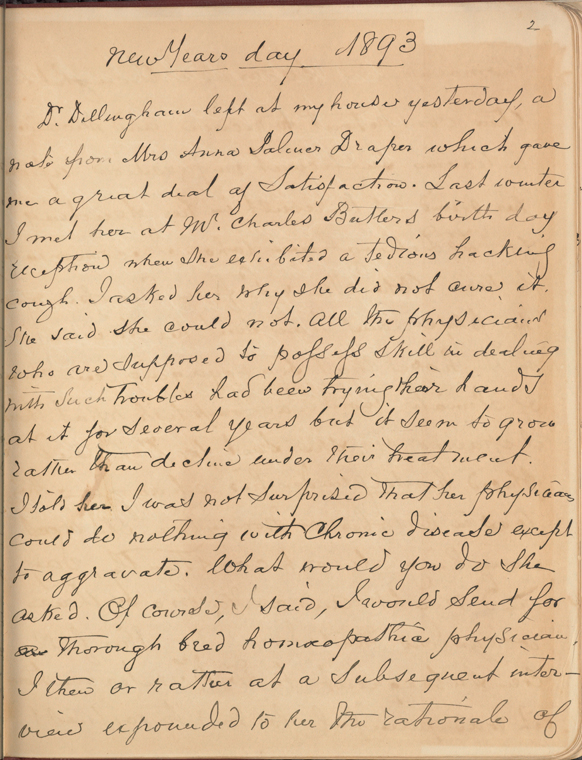 2
New Years day 1893
Dr. Dillingham left at my house yesterday, a
note from Mrs Anna Palmer Draper which gave
me a great deal of Satisfaction. Last winter
I met her at Mr. Charles Butlers birth day
reception when she exhibited a tedious hacking
cough. I asked her why she did not cure it.
She said she could not. All the physicians
who are supposed to possess skill in dealing
with such troubles had been trying their hands
at it for several years but it seem to grow
rather than decline under their treatment.
I told her I was not surprised that her physicians
could do nothing with Chronic disease except
to aggravate. What would you do she
asked. Of course, I said, I would send for
a thorough bred homœopathic physician.
I then or rather at a subsequent inter-
view expounded to her the rationale of